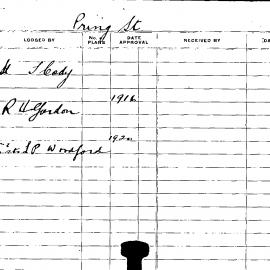 Pring St
LODGED BY No. of PLANS DATE APPROVAL RECEIVED BY DA
H I Cody
R H Gordon 1916
I P Woodford 192